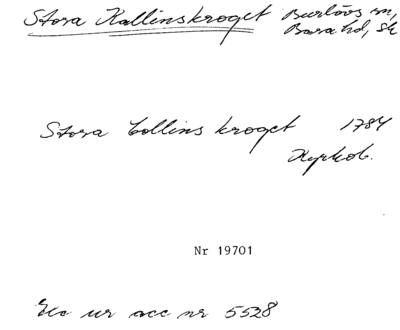 Stora Kallinskroget Burlövs sn,
Bara hd, Sk
Stora Collins kroget 1784
Kyrkob.
Nr 19701
Exc ur acc nr 5528